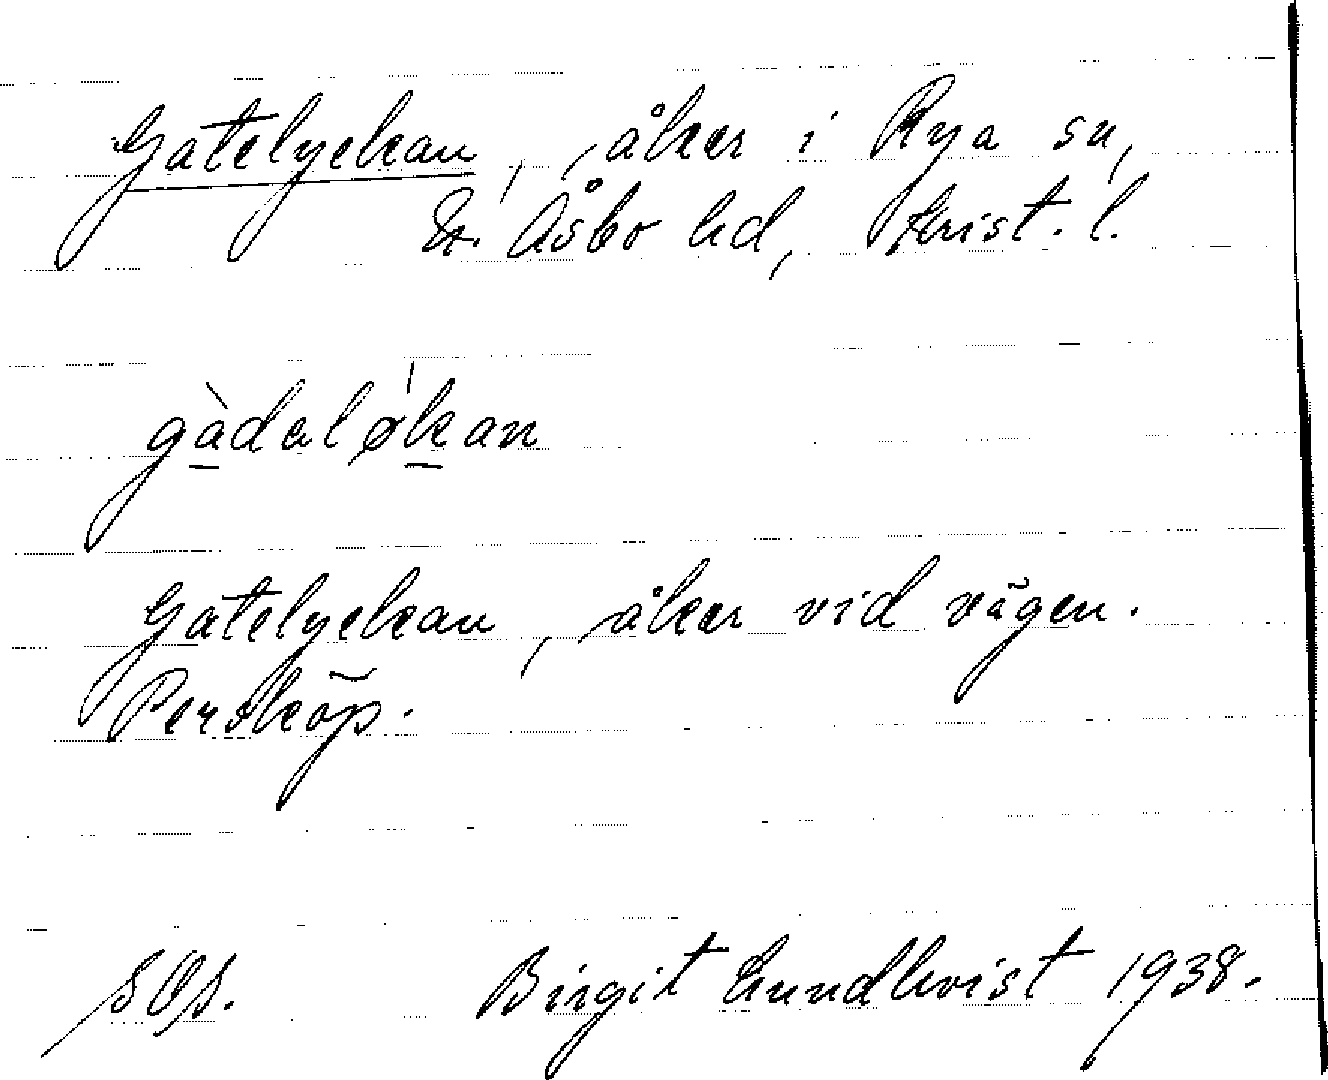 Gatelyckan, åker i Rya sn,
N. Åsbo hd, Krist. l.
gàdaløkan
Gatelyckan, åker vid vägen.
Perstorp.
SOS. Birgit Lundkvist 1938.